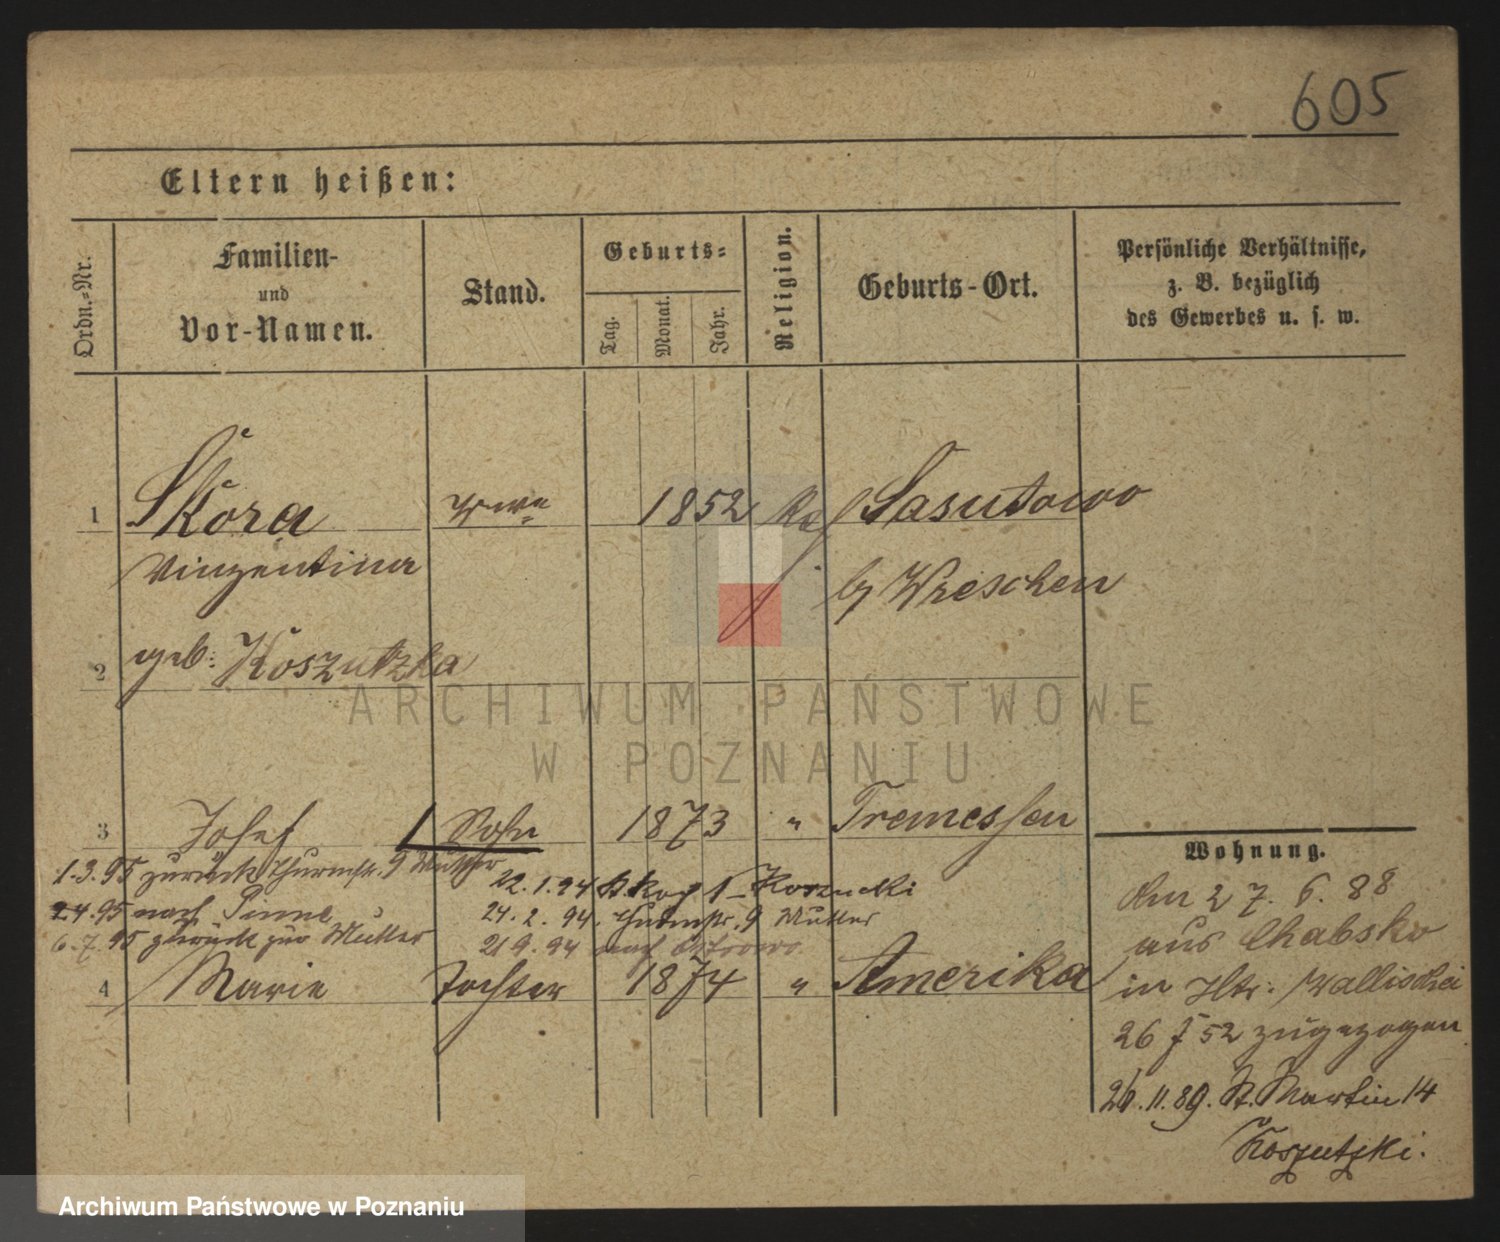 605
Eltern heißen:
Ordn.-Nr.
Familien-
und
Vor-Namen.
Stand.
Geburts-
Tag.
Monat.
Jahr.
Religion.
Geburts-Ort.
Persönliche Verhältnisse,
z. B. bezüglich
des Gewerbes u. s. w.
1 Skóra Wwe 1852 Sasutowo
Vinzentina Wreschen
2 geb: Koszutzka
ARCHIWUM PAŃSTWOWE
W POZNANIU
3 Josef Sohn 1873 " Tremessen
1.3.95 zurück Thurmstr. 9 Mutter
22.1.94
24.2.94. Thurmstr. 9 Mutter
nach Pinne
21 9. 94 nach Ostrowo
6.7.95 zurück zur Mutter
4 Marie Tochter 1874 " Amerika
Wohnung.
Den 27. 6. 88
aus Chabsko
in Wallischei
26 52 zugezogen
.11.89. St. Martin 14
Koszutzki.
Archiwum Państwowe w Poznaniu